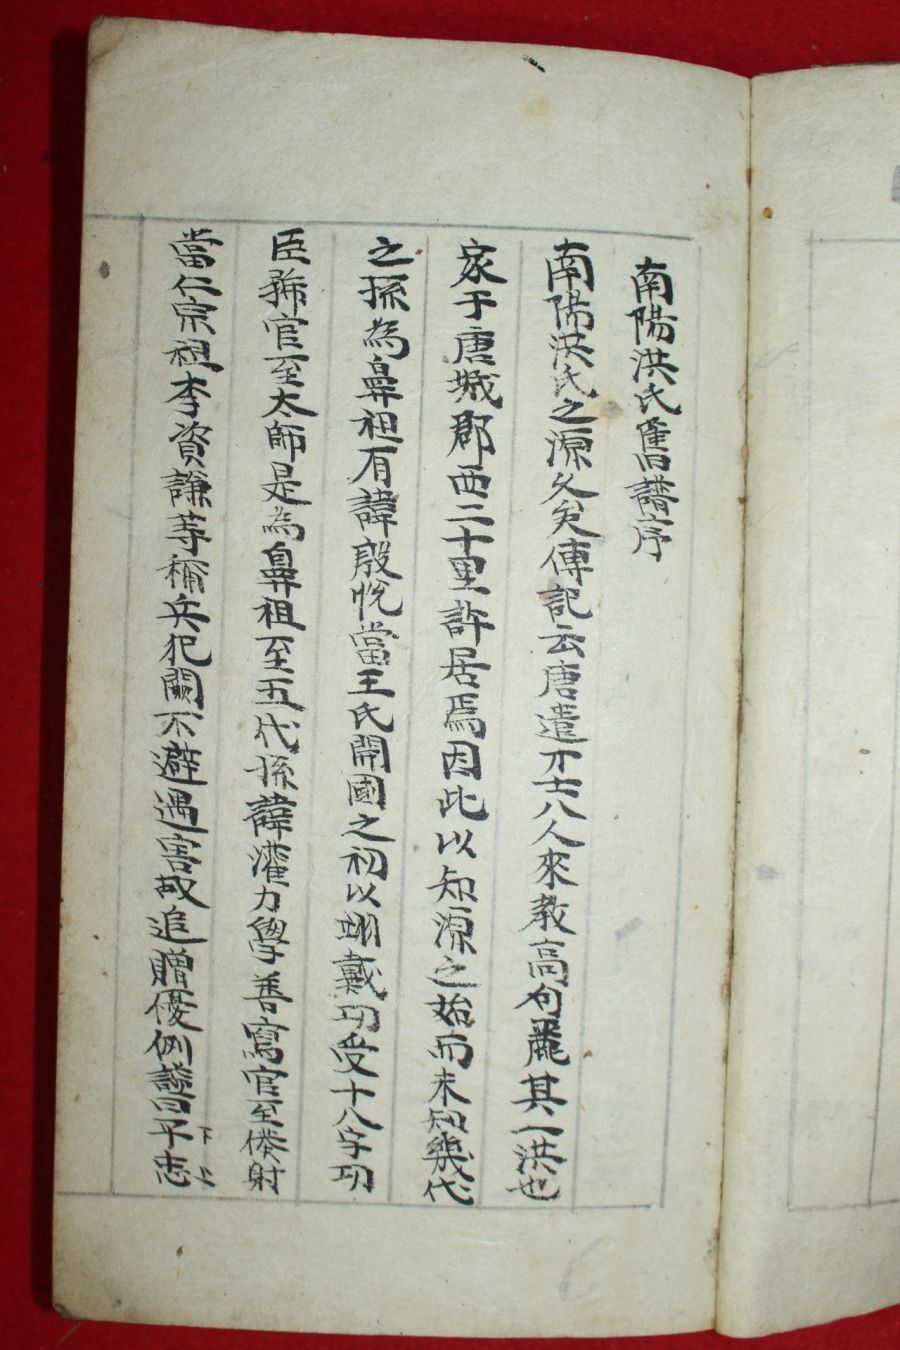 南陽洪氏舊譜序
南陽洪氏之源久矣傳記云唐遣才士八人來敎高句麗其一洪也
家于唐城郡西二十里許居焉因此以知源之始而未知幾代
之孫為鼻祖有諱殷悅當王氏開國之初以翊戴功受十八字功
臣號官至太師是為鼻祖至五代孫諱灌力學善寫官至僕射
當仁宗祖李資謙等稱兵犯闕不避遇害故追贈優例諡曰平忠
下上